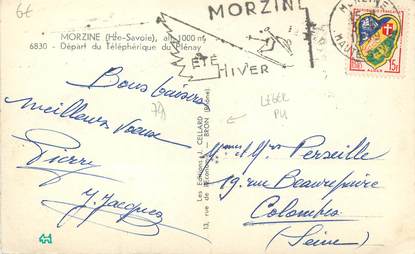 6€
MORZINE (Hte-Savoie), alt. 1000 m.
6830 - Départ du Téléphérique du Plénay
MORZINE
ÉTÉ
HIVER
15F
Bons baisers
meilleurs voeux
Pierre
J. Jacques
78
LEGER
PLI
Les Editions J. CELLARD
13, rue de BRON (Rhône)
et Mr Perseille
19 rue Beaurepaire
Colombes
(Seine)